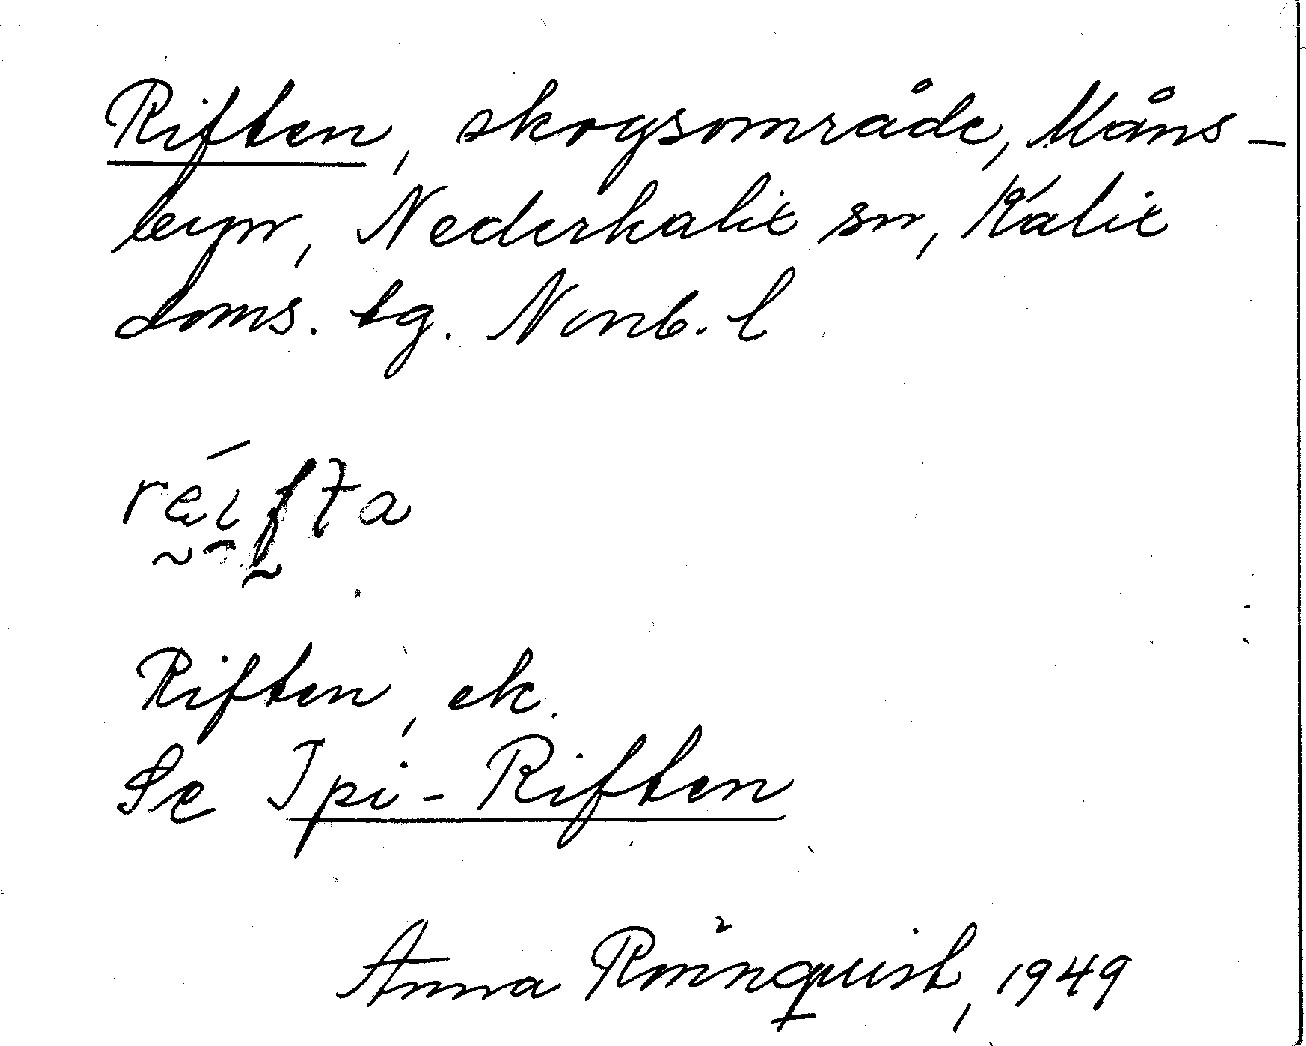 Riften, skogsområde, Måns-
byn, Nederkalix sn, Kalix
doms. tg. Norrb. l
réifta
Riften, ek.
Se Ipi-Riften
Anna Rönnquist, 1949